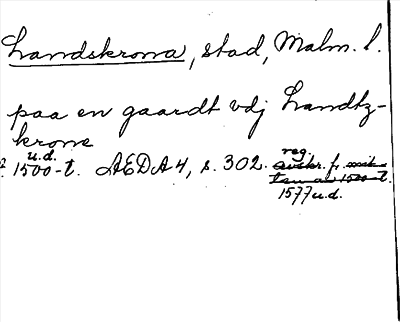 Landskrona, stad, Malm. l.
paa en gaardt vdj Landtz-
krone
u.d.
1500-t. ÆDA 4, s. 302. reg.
avskr. fr. mit-
ten av 1500-t.
1577 u.d.